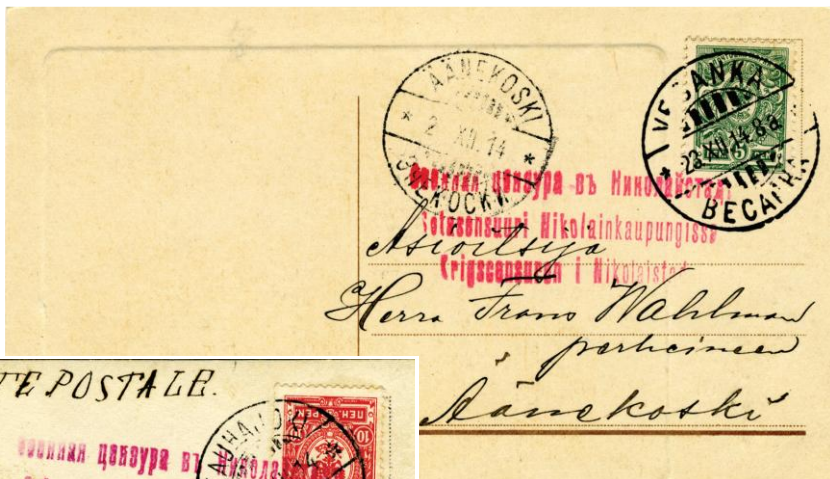 ÄÄNEKOSKI
XII. 14
ЭНЕКОСКИ
VESANKA
23.XII.14.8a
ВЕСАНКА
5
военная цензура въ Николайстадѣ
Sotasensuuri Nikolainkaupungissa
Krigscensuren i Nikolaistad
Asioitsija
Herra Frans Wahlman
perheineen
Äänekoski
TE POSTALE.
военная цензура въ
10
ПЕН